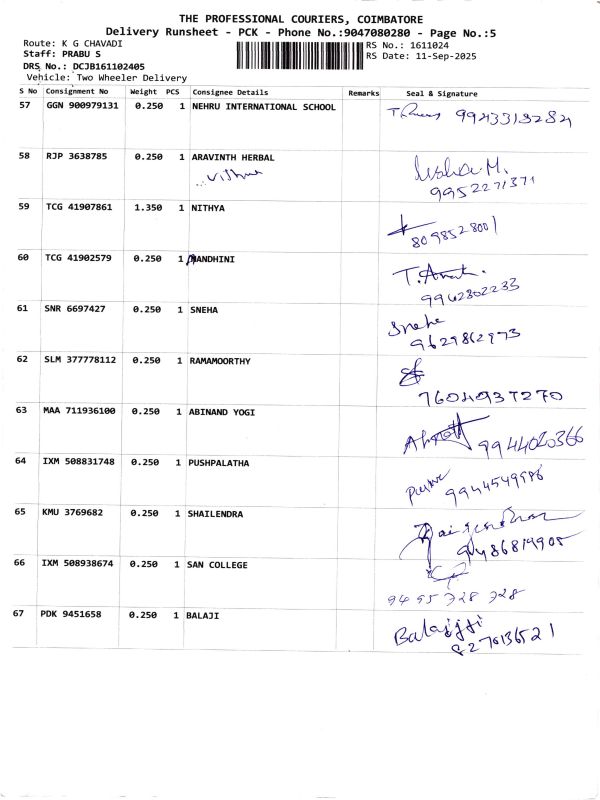 THE PROFESSIONAL COURIERS, COIMBATORE
Delivery Runsheet - PCK - Phone No.:9047080280 - Page No.:5
Route: K G CHAVADI
RS No.: 1611024
Staff: PRABU S
RS Date: 11-Sep-2025
DRS No.: DCJB161102405
Vehicle: Two Wheeler Delivery
S No Consignment No Weight PCS Consignee Details Remarks Seal & Signature
57 GGN 900979131 0.250 1 NEHRU INTERNATIONAL SCHOOL
58 RJP 3638785 0.250 1 ARAVINTH HERBAL
9952271371
59 TCG 41907861 1.350 1 NITHYA
8098528001
60 TCG 41902579 0.250 1 NANDHINI
9962802233
61 SNR 6697427 0.250 1 SNEHA
Snehe
9629862973
62 SLM 377778112 0.250 1 RAMAMOORTHY
7604937270
63 MAA 711936100 0.250 1 ABINAND YOGI
9944020366
64 IXM 508831748 0.250 1 PUSHPALATHA
65 KMU 3769682 0.250 1 SHAILENDRA
66 IXM 508938674 0.250 1 SAN COLLEGE
9495 728 728
67 PDK 9451658 0.250 1 BALAJI